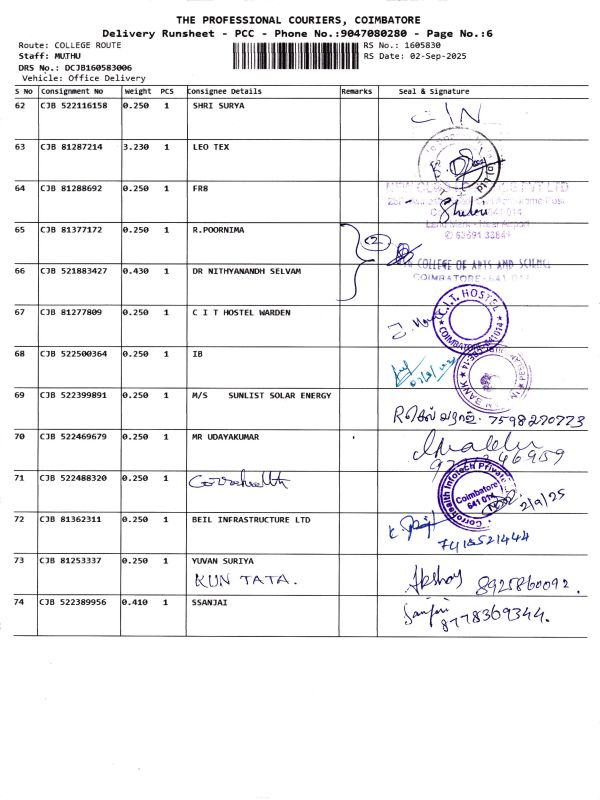 THE PROFESSIONAL COURIERS, COIMBATORE
Delivery Runsheet - PCC - Phone No.:9047080280 - Page No.:6
Route: COLLEGE ROUTE RS No.: 1605830
Staff: MUTHU RS Date: 02-Sep-2025
DRS No.: DCJB160583006
Vehicle: Office Delivery
S No Consignment No Weight PCS Consignee Details Remarks Seal & Signature
62 CJB 522116158 0.250 1 SHRI SURYA
63 CJB 81287214 3.230 1 LEO TEX
64 CJB 81288692 0.250 1 FR8
641 014
65 CJB 81377172 0.250 1 R.POORNIMA
(2)
COLLEGE OF ARTS AND SCIENCE
66 CJB 521883427 0.430 1 DR NITHYANANDH SELVAM
COIMBATORE - 641 014
67 CJB 81277809 0.250 1 C I T HOSTEL WARDEN
C.I.T. HOSTEL
68 CJB 522500364 0.250 1 IB
69 CJB 522399891 0.250 1 M/S SUNLIST SOLAR ENERGY
7598270773
70 CJB 522469679 0.250 1 MR UDAYAKUMAR
71 CJB 522488320 0.250 1 Corrohealth
CorroHealth Infotech Private
Coimbatore
641 014
2/9/25
72 CJB 81362311 0.250 1 BEIL INFRASTRUCTURE LTD
7418521444
73 CJB 81253337 0.250 1 YUVAN SURIYA
KUN TATA. Akshay 8925860092.
74 CJB 522389956 0.410 1 SSANJAI
Sanjai
8778369344.